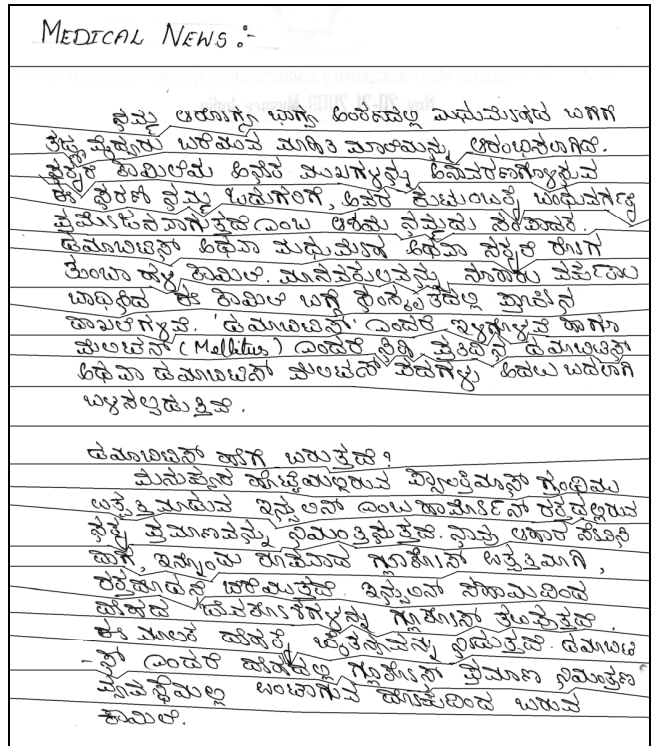 MEDICAL NEWS :-
ನಮ್ಮ ಆರೋಗ್ಯ ಭಾಗ್ಯ ಅಂಕಣದಲ್ಲಿ ಮಧುಮೇಹದ ಬಗೆಗೆ
ತಜ್ಞ ವೈದ್ಯರು ಬರೆಯುವ ಮಾಹಿತಿ ಮಾಲೆಯನ್ನು ಆರಂಭಿಸಲಾಗಿದೆ.
ಸಕ್ಕರೆ ಕಾಯಿಲೆಯ ಅನೇಕ ಮುಖಗಳನ್ನು ಅನಾವರಣಗೊಳ್ಳಿಸುವ
ಈ ಸರಣಿ ನಮ್ಮ ಓದುಗರಿಗೆ, ಅವರ ಕುಟುಂಬಕ್ಕೆ ಬಂಧುವರ್ಗಕ್ಕೆ
ಪ್ರಯೋಜನವಾಗುತ್ತದೆ ಎಂಬ ಆಶಯ ನಮ್ಮದು ಸಂಪಾದಕ.
ಡಯಾಬಿಟಿಸ್ ಅಥವಾ ಮಧುಮೇಹ ಅಥವಾ ಸಕ್ಕರೆ ರೋಗ
ತುಂಬಾ ಹಳೆ ಕಾಯಿಲೆ. ಮಾನವಕುಲವನ್ನು ಸಾವಿರಾರು ವರ್ಷಗಳು
ಬಾಧಿಸಿದ ಈ ಕಾಯಿಲೆ ಬಗ್ಗೆ ಸಂಸ್ಕೃತದಲ್ಲಿ ಪ್ರಾಚೀನ
ದಾಖಲೆಗಳಿವೆ. 'ಡಯಾಬಿಟಿಸ್' ಎಂದರೆ ಇಳಿಗೊಳಿವೆ ಹಾಗೂ
ಮೆಲಿಟಸ್ (Mellitus) ಎಂದರೆ ಸಿಹಿ ಪ್ರತಿದಿನ ಡಯಾಬಿಟಿಸ್
ಅಥವಾ ಡಯಾಬಿಟಿಸ್ ಮೆಲಿಟಸ್ ಪದಗಳು ಅದಲು ಬದಲಾಗಿ
ಬಳಸಲ್ಪಡುತ್ತಿವೆ.
ಡಯಾಬಿಟಿಸ್ ಹೇಗೆ ಬರುತ್ತದೆ?
ಮನುಷ್ಯನ ಹೊಟ್ಟೆಯಲ್ಲಿರುವ ಪ್ಯಾಂಕ್ರಿಯಾಸ್ ಗ್ರಂಥಿಯು
ಉತ್ಪತ್ತಿಮಾಡುವ ಇನ್ಸುಲಿನ್ ಎಂಬ ಹಾರ್ಮೋನ್ ರಕ್ತದಲ್ಲಿರುವ
ಸಕ್ಕರೆ ಪ್ರಮಾಣವನ್ನು ನಿಯಂತ್ರಿಸುತ್ತದೆ. ನಾವು ಆಹಾರ ಸೇವಿಸಿ
ದಾಗ, ಇನ್ನೊಂದು ರೂಪವಾದ ಗ್ಲೂಕೋಸ್ ಉತ್ಪತ್ತಿಯಾಗಿ,
ರಕ್ತದೊಡನೆ ಬೆರೆಯುತ್ತದೆ. ಇನ್ಸುಲಿನ್ ಸಹಾಯದಿಂದ
ದೇಹದ ಜೀವಕೋಶಗಳನ್ನು ಗ್ಲೂಕೋಸ್ ತಲುಪುತ್ತದೆ.
ಈ ಮೂಲಕ ದೇಹಕ್ಕೆ ಚೈತನ್ಯವನ್ನು ನೀಡುತ್ತದೆ. ಡಯಾಬಿಟಿ
-ಸ್ ಎಂದರೆ ದೇಹದಲ್ಲಿ ಗ್ಲೂಕೋಸ್ ಪ್ರಮಾಣ ನಿಯಂತ್ರಣ
ವ್ಯವಸ್ಥೆಯಲ್ಲಿ ಉಂಟಾಗುವ ದೋಷದಿಂದ ಬರುವ
ಕಾಯಿಲೆ.